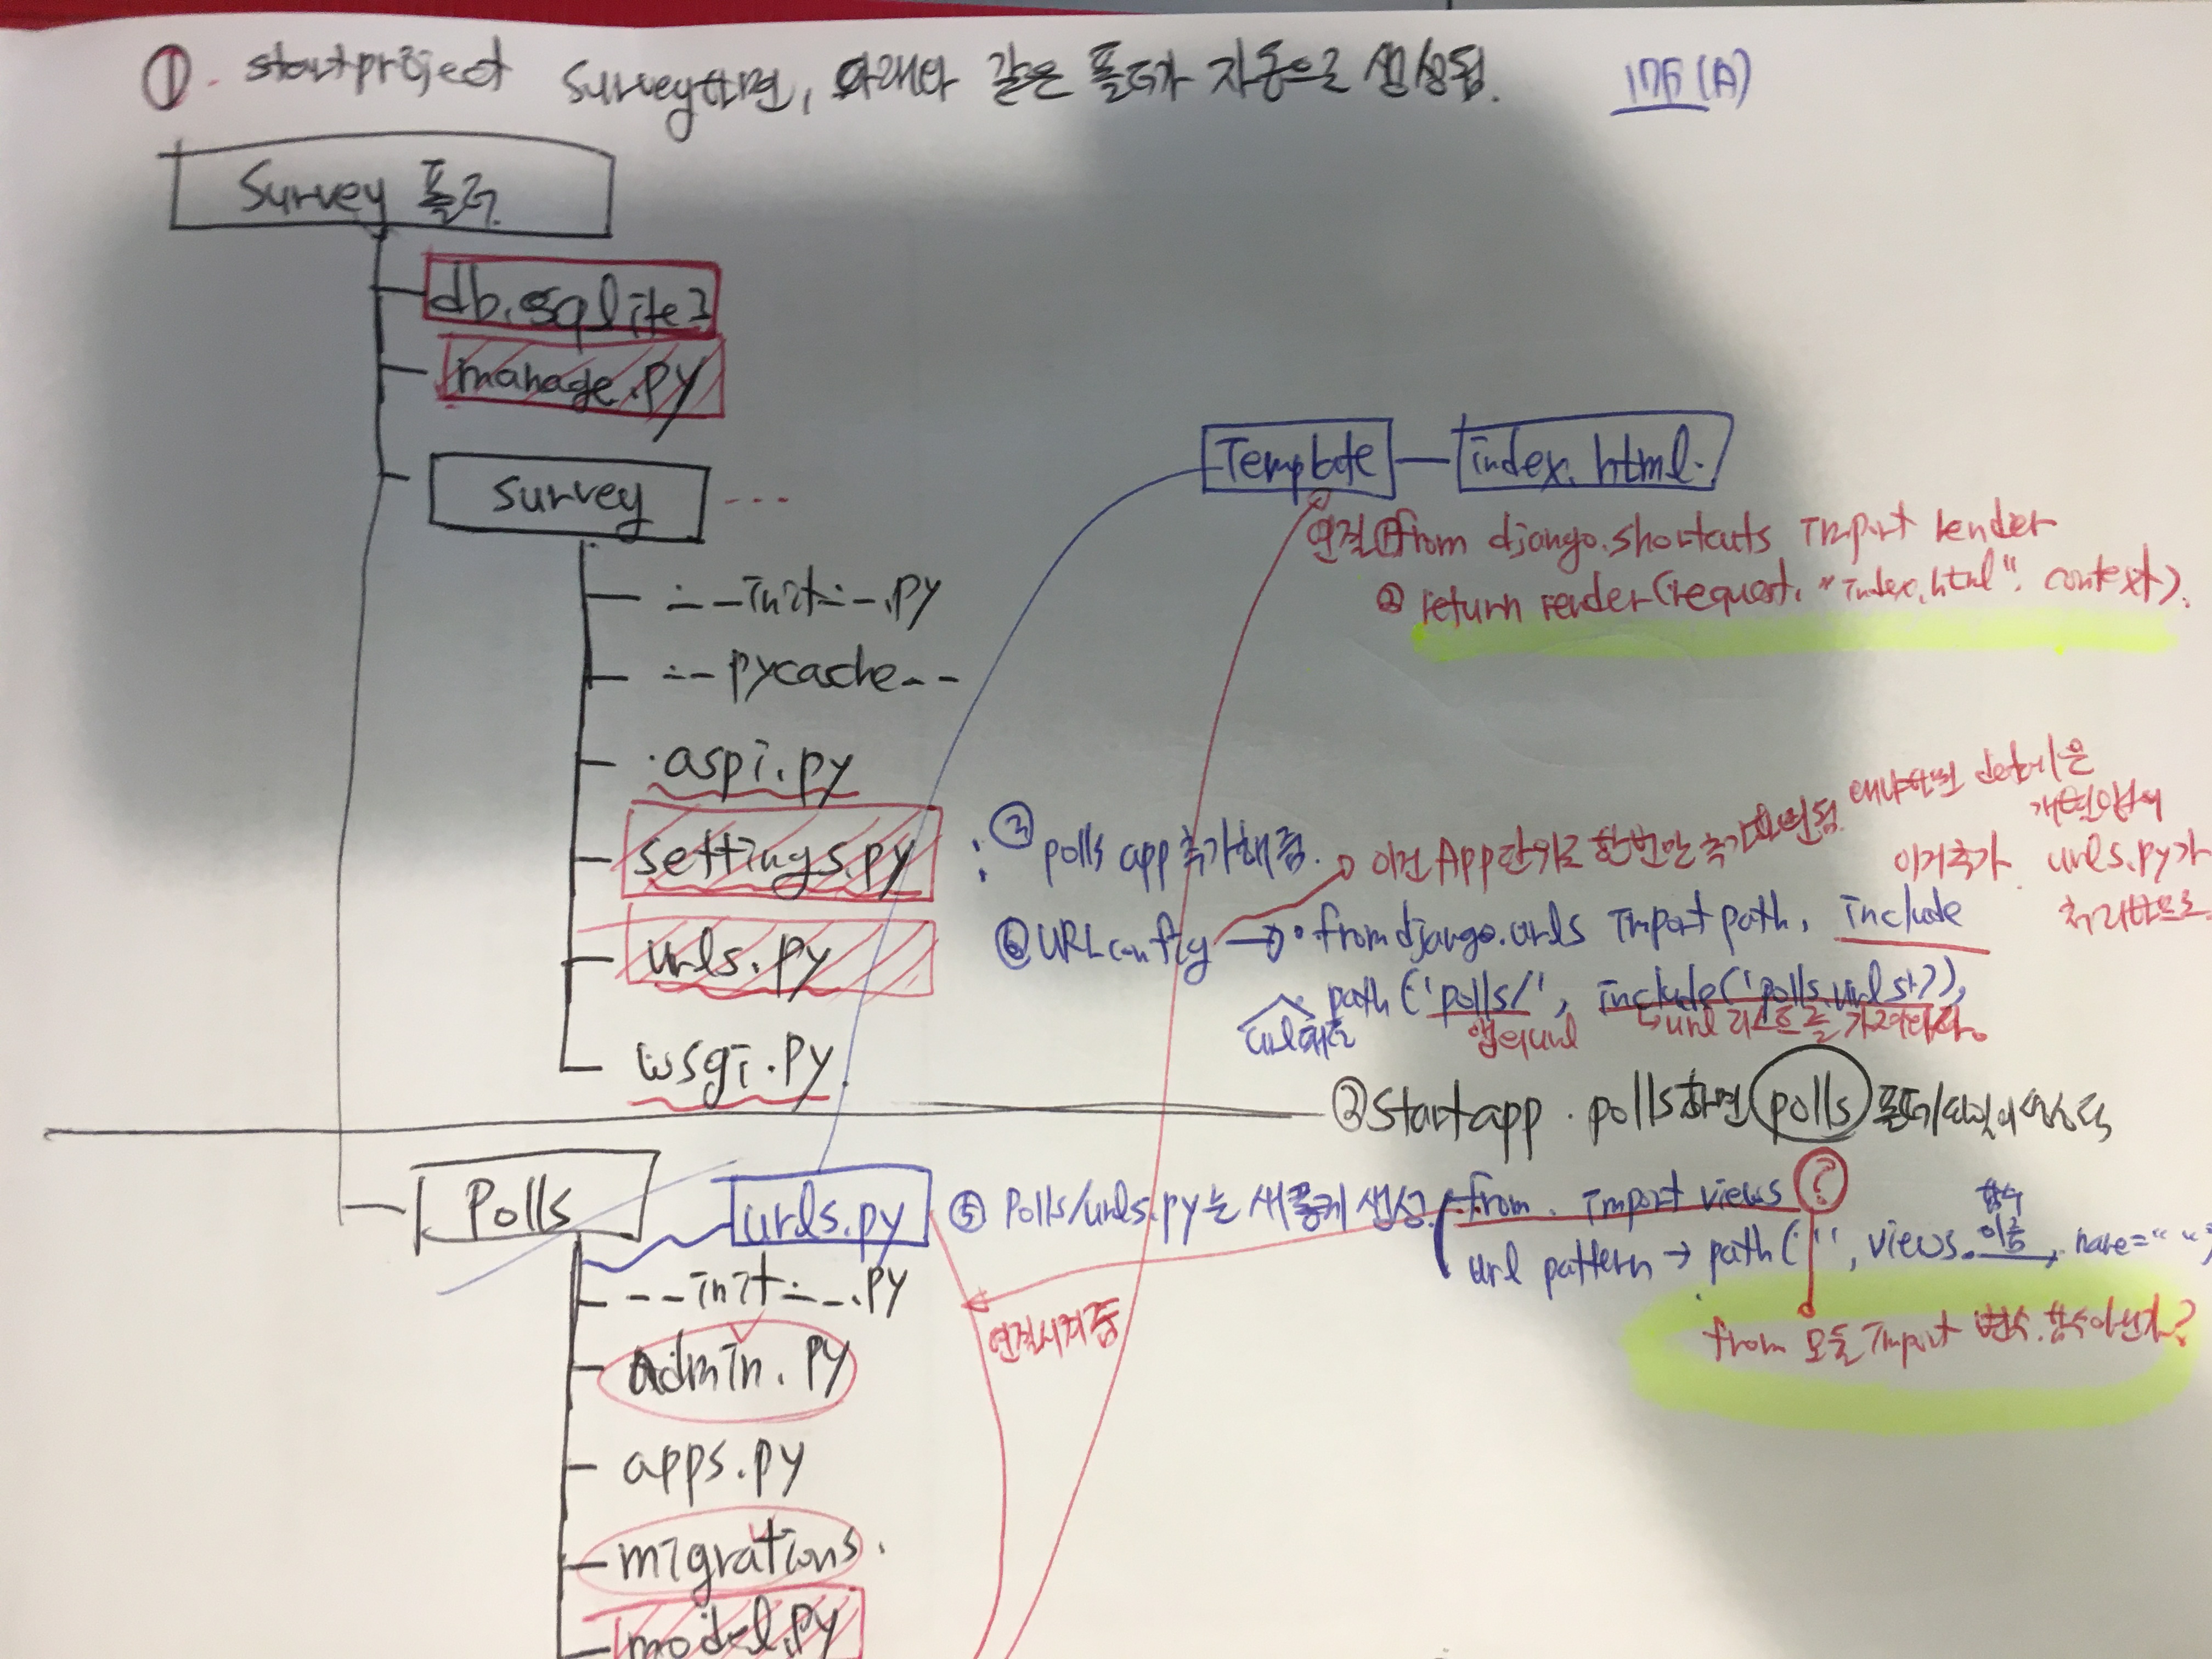 ① startproject survey하면, 아래와 같은 폴더가 자동으로 생성됨.
Survey 폴더
db.sqlite3
manage.py
survey ---
Template
index.html.
연결 ① from django.shortcuts import render
② return render(request, "index.html", context).
__init__.py
__pycache__
aspi.py
settings.py
: ③ polls app 추가해줌.
이건 App단위로 한번만 추가
detail은
이거추가
urls.py가
urls.py
⑥ URLconfig → from django.urls import path, include
path('polls/', include('polls.urls')),
앱의url
url 리스트를 가져와라.
wsgi.py
② startapp. polls하면 polls 폴더/파일이 생성됨
Polls
urls.py
⑤ Polls/urls.py는 새롭게 생성
from . import views ?
url pattern → path('', views.이름, name=" "
함수
연결시켜줌
from 모듈 import 변수.함수아닌가?
__init__.py
admin.py
apps.py
migrations.
model.py